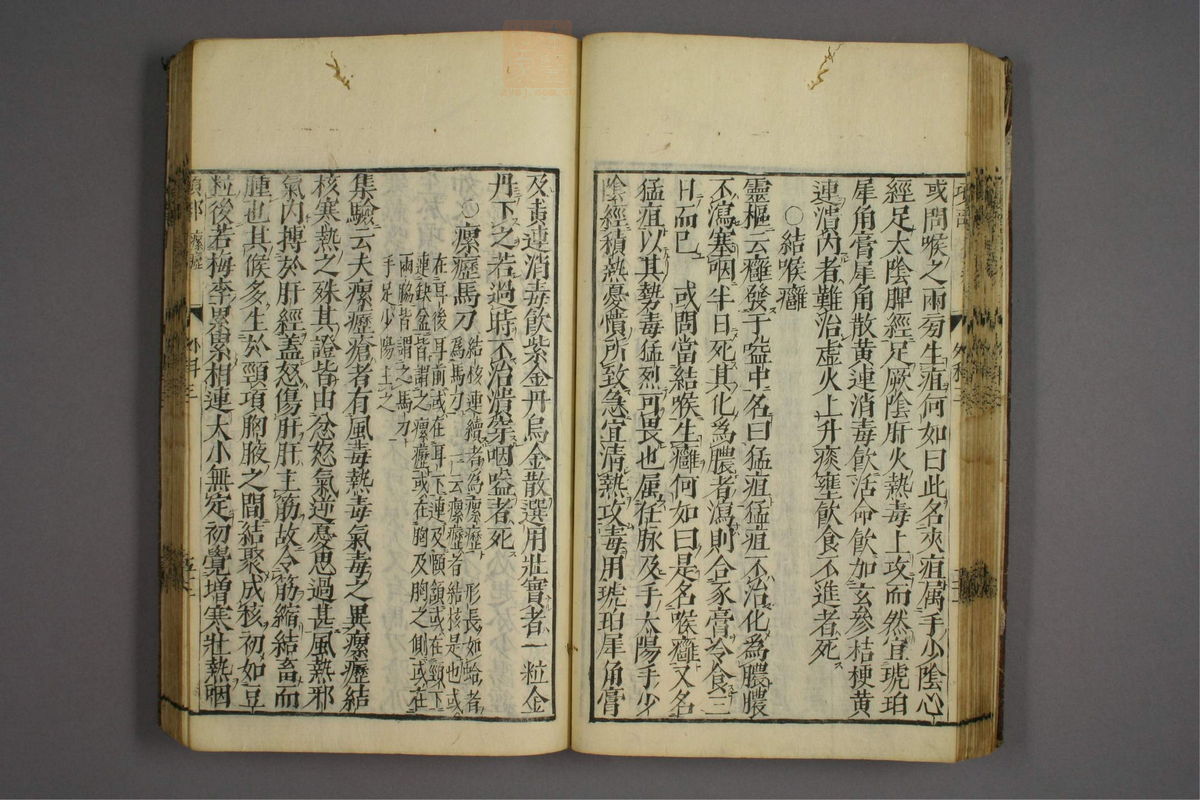 或問喉之兩旁生疽何如曰此名夾疽屬手少陰心
經足太陰脾經足厥陰肝火熱毒上攻而然宜琥珀
犀角膏犀角散黃連消毒飲活命飲加玄參桔梗黃
連潰內者難治虛火上升痰壅飲食不進者死
○結喉癰
靈樞云癰發于嗌中名曰猛疽猛疽不治化為膿膿
不瀉塞咽半日死其化為膿者瀉則合豕膏冷食三
日而已 或問當結喉生癰何如曰是名喉癰又名
猛疽以其勢毒猛烈可畏也屬任脉及手太陽手少
陰經積熱憂憤所致急宜清熱攻毒用琥珀犀角膏
及黃連消毒飲紫金丹烏金散選用壯實者一粒金
丹下之若過時不治潰穿咽嗌者死
○瘰癧馬刀 結核連續者為瘰癧形長如蛤者
為馬刀一云瘰癧者結核是也或
在耳後耳前或在耳下連及頤頷或在頸下
連缺盆皆謂之瘰癧或在胸及胸之側或在
兩脇皆謂之馬刀
手足少陽主之
集驗云夫瘰癧瘡者有風毒熱毒氣毒之異瘰癧結
核寒熱之殊其證皆由忿怒氣逆憂思過甚風熱邪
氣內搏於肝經蓋怒傷肝肝主筋故令筋縮結畜而
腫也其候多生於頸項胸腋之間結聚成核初如豆
粒後若梅李累累相連大小無定初覺增寒壯熱咽
項部 瘰癧 外科三